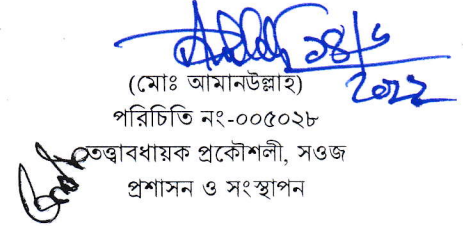 ১৪/৬
২০২২
(মোঃ আমানউল্লাহ)
পরিচিতি নং-০০৫০২৮
তত্ত্বাবধায়ক প্রকৌশলী, সওজ
প্রশাসন ও সংস্থাপন